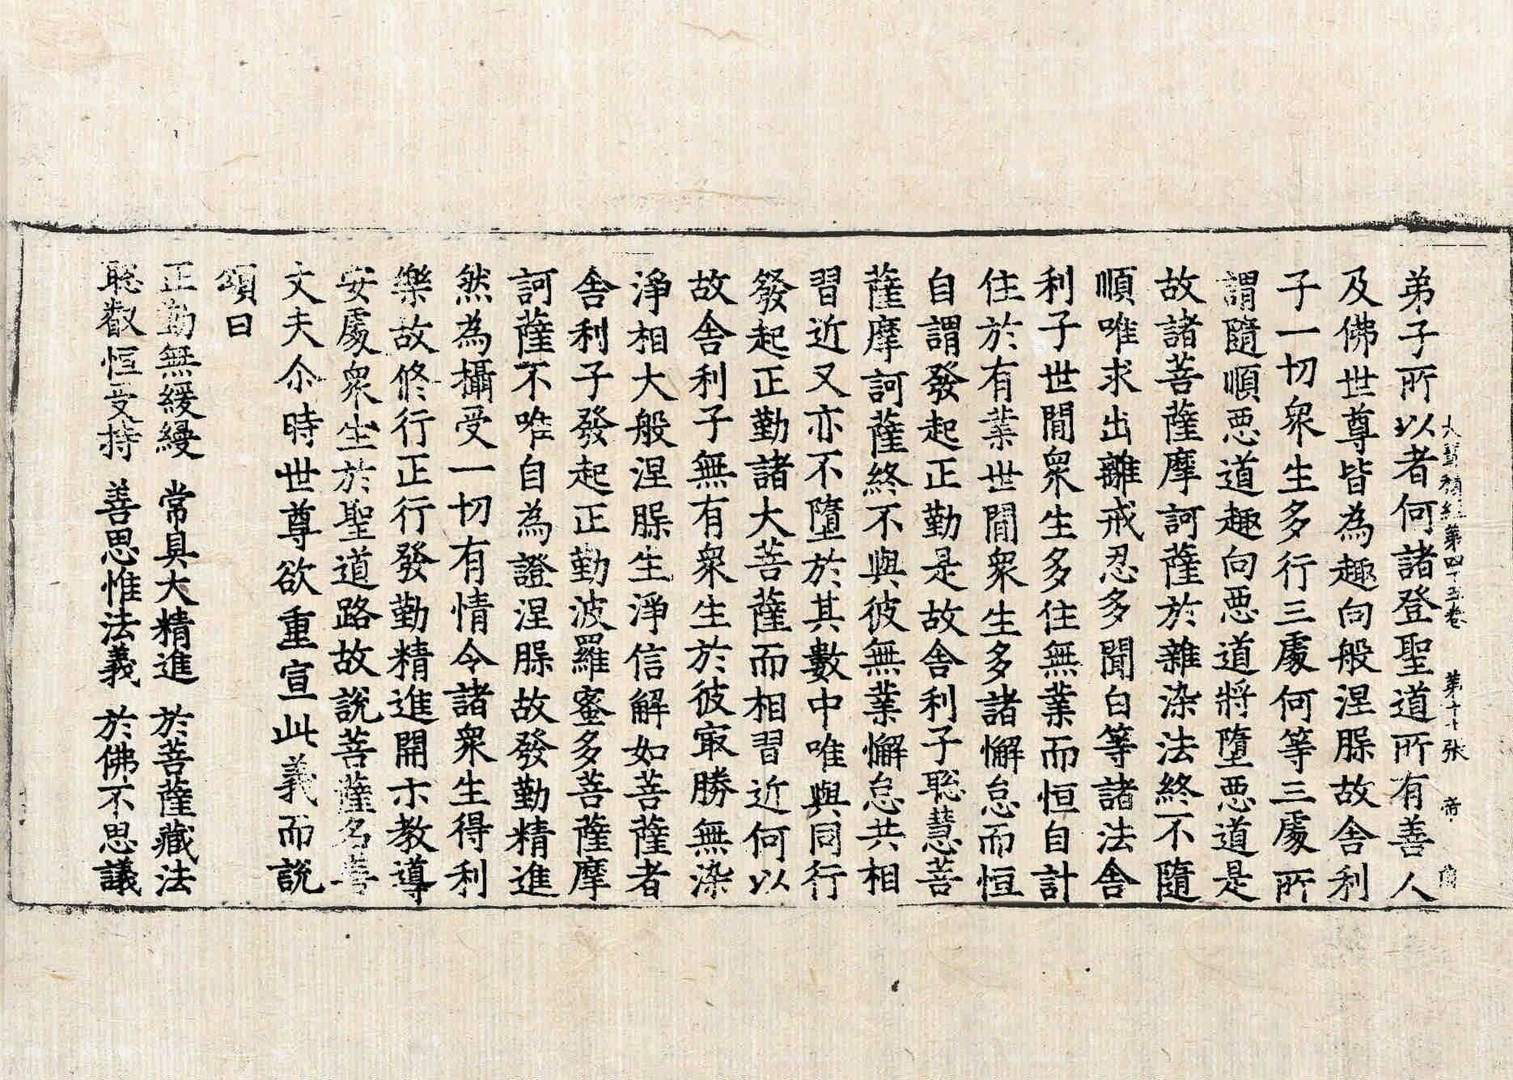 大寶積經第四十五卷 第二十張 帝
弟子所以者何諸登聖道所有善人
及佛世尊皆為趣向般涅脲故舍利
子一切衆生多行三處何等三處所
謂隨順惡道趣向惡道將墮惡道是
故諸菩薩摩訶薩於雜染法終不隨
順唯求出離戒忍多聞白等諸法舍
利子世間衆生多住無業而恒自計
住於有業世間衆生多諸懈怠而恒
自謂發起正勤是故舍利子聡慧菩
薩摩訶薩終不與彼無業懈怠共相
習近又亦不墮於其數中唯與同行
發起正勤諸大菩薩而相習近何以
故舍利子無有衆生於彼㝡勝無染
淨相大般涅脲生淨信解如菩薩者
舎利子發起正勤波羅蜜多菩薩摩
訶薩不唯自為證涅脲故發勤精進
然為攝受一切有情令諸衆生得利
樂故修行正行發勤精進開示教導
安處衆生於聖道路故說菩薩名善
文夫尒時世尊欲重宣此義而說
頌曰
正勤無緩縵 常具大精進 於菩薩藏法
聡叡恒受持 善思惟法義 於佛不思議